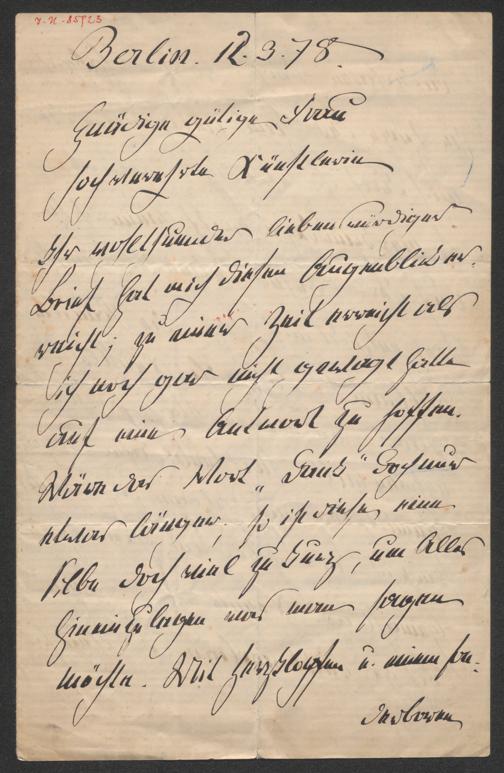 J. N. 85523
Berlin. 12.3.78.
Gnädige gütige Frau
hochverehrte Künstlerin
Ihr liebenswürdiger
Brief hat mich diesen Augenblick er-
reicht; zu einer Zeit erreicht als
ich noch gar nicht gewagt hatte
auf eine Antwort zu hoffen.
Wäre das Wort „Dank“ doch nur
etwas länger, so ist diese eine
Silbe doch viel zu kurz, um Alles
hineinzulegen was man sagen
möchte. Mit Herzklopfen u. einem